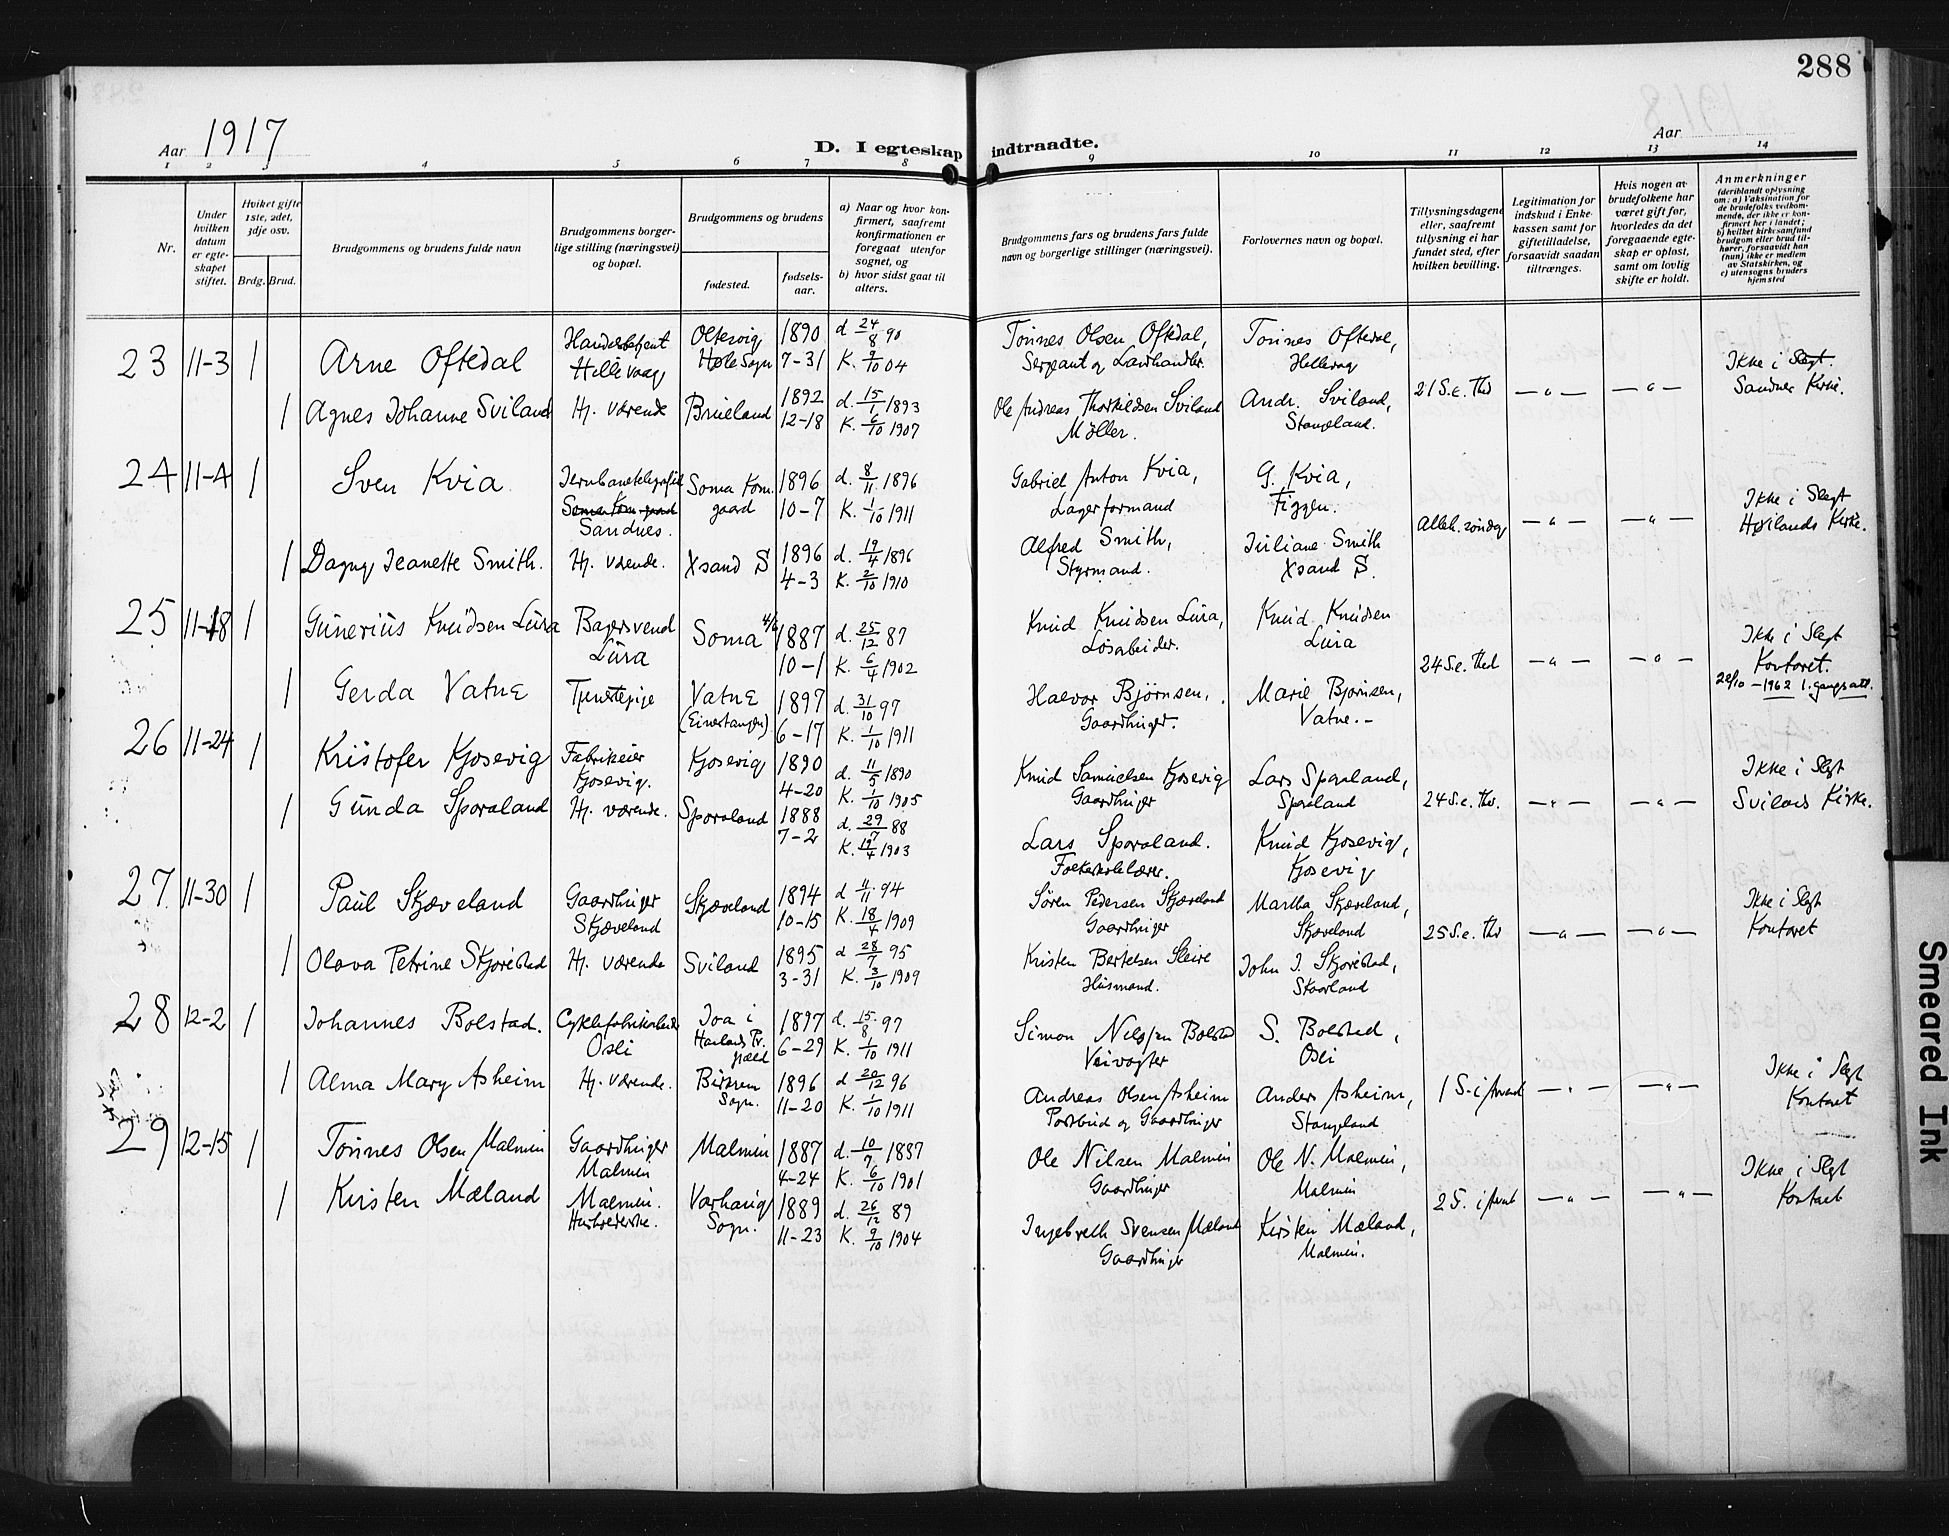 288
Aar 1917
D. I egteskap indtraadte.
Aar
1 2 3 4 5 6 7 8 9 10 11 12 13 14
Nr.
Under hvilken datum er egteskapet stiftet.
Hviket gifte 1ste, 2det, 3dje osv.
Brdg. Brud.
Brudgommens og brudens fulde navn
Brudgommens borgerlige stilling (næringsvei) og bopæl.
Brudgommens og brudens
fødested.
fødselsaar.
a) Naar og hvor konfirmert, saafremt konfirmationen er foregaat utenfor sognet, og
b) hvor sidst gaat til alters.
Brudgommens fars og brudens fars fulde navn og borgerlige stillinger (næringsvei).
Forlovernes navn og bopæl.
Tillysningsdagene eller, saafremt tillysning ei har fundet sted, efter hvilken bevilling.
Legitimation for indskud i Enkekassen samt for giftetilladelse, forsaavidt saadan tiltrænges.
Hvis nogen av brudefolkene har været gift før, hvorledes da det foregaaende egteskap er opløst, samt om lovlig skifte er holdt.
Anmerkninger
(deriblandt oplysning om: a) Vaksination for de brudefolks vedkommende, der ikke er konfirmert her i landet; b) hvilket kirkesamfund brudgom eller brud tilhører, forsaavidt han (hun) ikke er medlem av Statskirken, og c) utensogns bruders hjemsted
23 11-3 1 Arne Oftedal Hillevaag Oltesvig Høle Sogn 1890 7-31 d 24/8 90 K. 9/10 04 Tønnes Olsen Oftedal, Sergeant og Landhandler. Tønnes Oftedal, Hillevag
1 Agnes Johanne Sviland Hj. værende Brueland 1892 12-18 d. 15/1 1893 K. 6/10 1907 Ole Andreas Thorkildsen Sviland Møller. Andr. Sviland, Stangeland. 21 S.e. Thr. — " — — " — Ikke i Slegt. Sandnes Kirke.
24 11-4 1 Sven Kvia Jernbanetelegrafist Sandnes. Soma Kom. gaard 1896 10-7 d. 8/11 1896 K. 1/10 1911 Gabriel Anton Kvia, Lagerformand G. Kvia, Figgen. Alleh. søndag — " — — " — Ikke i Slegt Høilands Kirke.
1 Dagny Jeanette Smith. Hj. værende. Xsand S 1896 4-3 d. 19/4 1896 K. 2/10 1910 Alfred Smith, Styrmand. Juliane Smith Xsand S.
25 11-18 1 Gunerius Knudsen Lura Bagersvend Lura Soma 1887 10-1 d. 25/12 87 K. 6/4 1902 Knud Knudsen Lura, Løsarbeider. Knud Knudsen Lura 24 S.e. Thr. — " — — " — Ikke i Slegt Kontoret. 26/10 – 1962 1. gangs att.
1 Gerda Vatne Tjenestepige Vatne (Einestangen) 1897 6-17 d. 31/10 97 K. 1/10 1911 Halvor Bjørnsen, Gaardbruger. Marie Bjørnsen, Vatne.
26 11-24 1 Kristofer Kjosevig Fabrikeier Kjosevig. Kjosevig 1890 4-20 d. 11/5 1890 K. 1/10 1905 Knud Samuelsen Kjosevig Gaardbruger Lars Sporaland, Sporaland 24 S.e. Thr. — " — — " — Ikke i Slegt Svilands Kirke.
1 Gunda Sporaland Hj. værende. Sporaland 1888 7-2 d. 29/7 88 K. 19/4 1903 Lars Sporaland. Folkeskolelærer. Knud Kjosevig, Kjosevig
27 11-30 1 Paul Skjæveland Gaardbruger Skjæveland Skjæveland 1894 10-15 d 11/11 94 K. 18/4 1909 Søren Pedersen Skjæveland Gaardbruger Martha Skjæveland, Skjæveland 25 S.e. Thr — " — — " — Ikke i Slegt Kontoret
1 Olava Petrine Skjørestad Hj. værende Sviland 1895 3-31 d 28/7 95 K. 3/10 1909 Kristen Bertelsen Sleire Husmand. John J. Skjørestad, Skaarland
28 12-2 1 Johannes Bolstad. Cyklefabrikarbeider Osli Joa i Haalands Pr. gjeld 1897 6-29 d. 15/8 97 K. 1/10 1911 Simon Nilssen Bolstad Veivogter S. Bolstad, Osli
1 Alma Mary Asheim Hj. værende. Bjerkrem Sogn. 1896 11-20 d 20/12 96 K. 1/10 1911 Andreas Olsen Asheim Postbud og Gaardbruger Anders Asheim, Stangeland 1 S. i Advent — " — — " — Ikke i Slegt Kontoret
29 12-15 1 Tønnes Olsen Malmin Gaardbruger Malmin Malmin 1887 4-24 d. 10/7 1887 K. 6/10 1901 Ole Nilsen Malmin Gaardbruger Ole N. Malmin, Malmin 2 S. i Advent — " — — " — Ikke i Slegt Kontoret
1 Kirsten Mæland Malmin. Husbestyrerinde. Varhaug Sogn. 1889 11-23 d. 26/12 89 K. 9/10 1904 Ingebreth Svensen Mæland Gaardbruger Kirsten Mæland, Malmin.
Smeared Ink